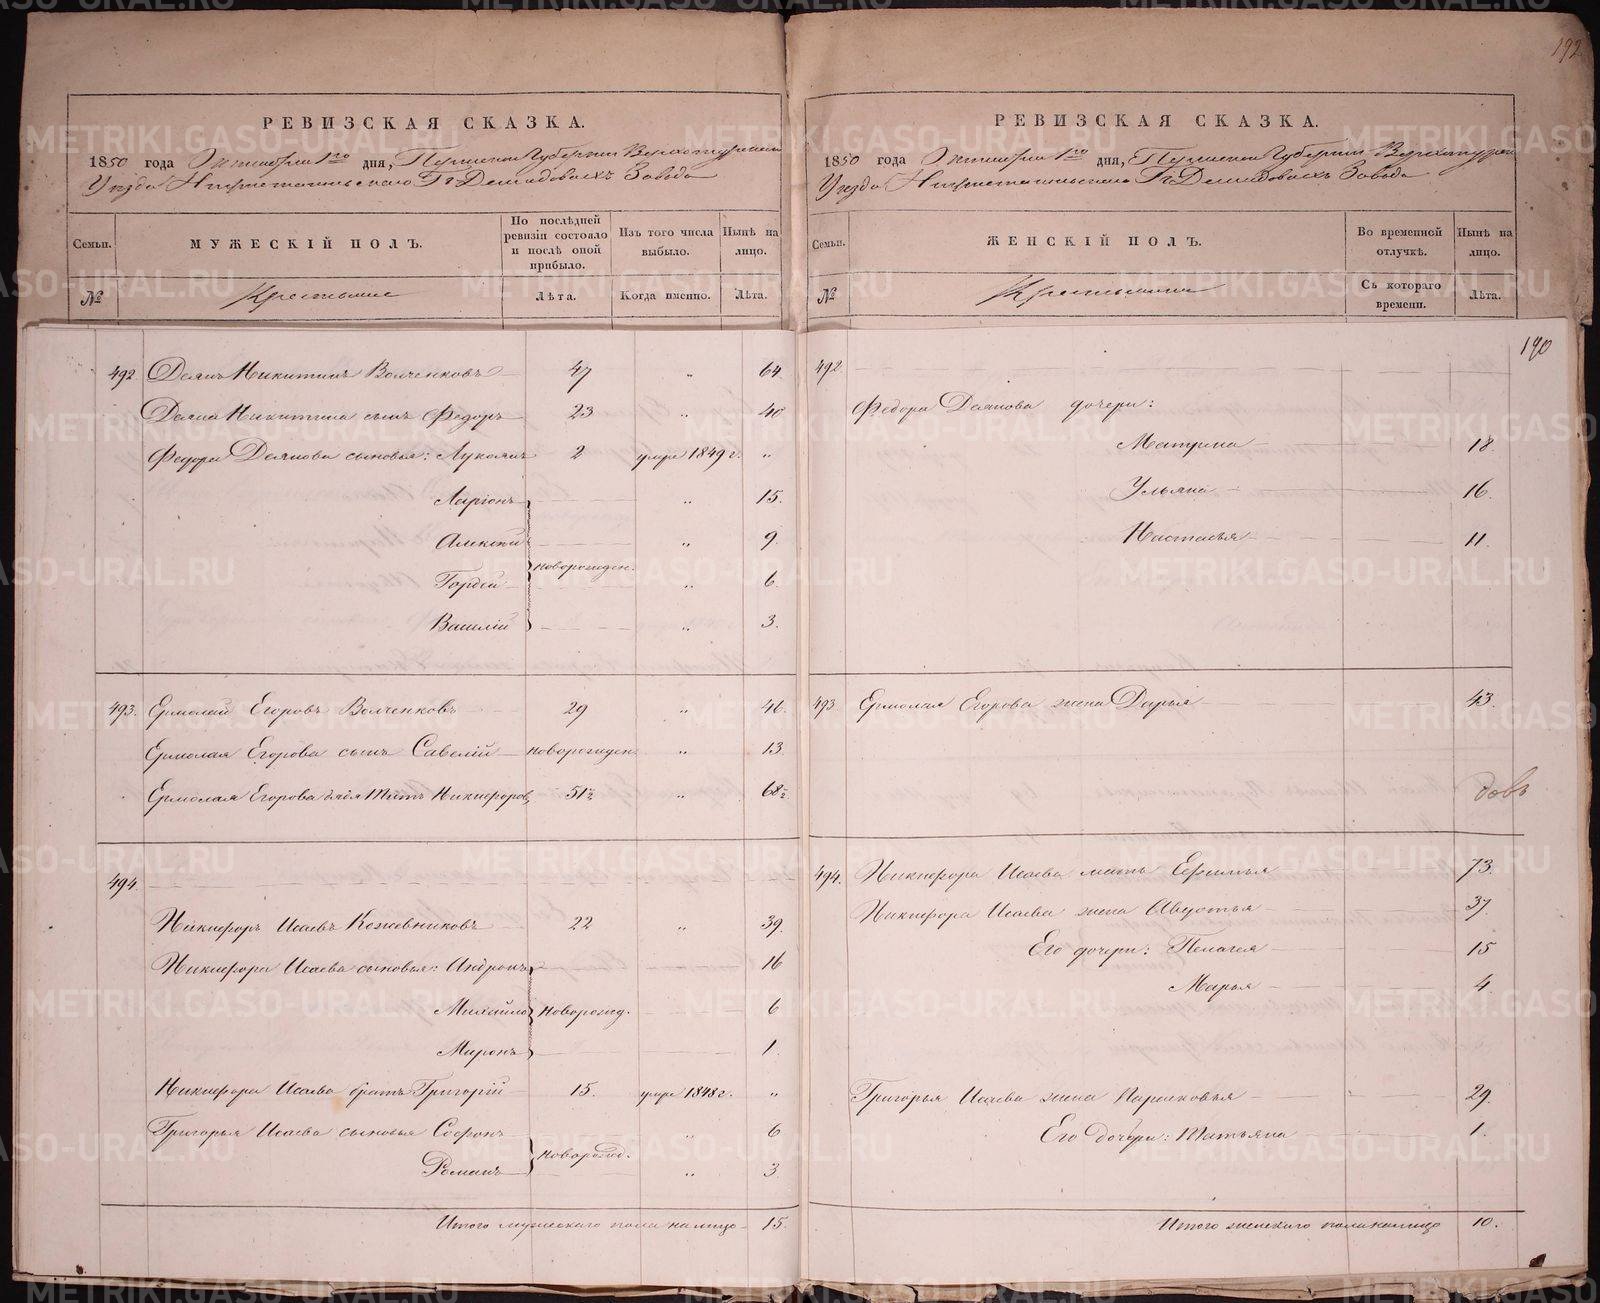 192
РЕВИЗСКАЯ СКАЗКА.
1850 года Октября 1го дня, Пермской Губернии Верхотурскаго
Уѣзда Нижнетагильскаго Гг Демидовыхъ Завода
Семьи. МУЖЕСКІЙ ПОЛЪ. По послѣдней ревизіи состояло и послѣ оной прибыло. Изъ того числа выбыло. Нынѣ на лицо.
№ Крестьяне Лѣта. Когда именно. Лѣта.
492 Демянъ Никитинъ Волченковъ 47 „ 64
Демяна Никитина сынъ Федоръ 23 „ 40
Федора Демянова сыновья: Лукоянъ 2 умре 1849 г. „
Ларіонъ „ 15.
Алексѣй „ 9.
новорожден.
Гордей „ 6.
Василій „ 3.
493. Ермолай Егоровъ Волченковъ 29 „ 46.
Ермолая Егорова сынъ Савелій новорожден. „ 13
Ермолая Егорова дядя Титъ Никифоровъ 51½ „ 68½
494.
Никифоръ Исаевъ Кожевниковъ 22 „ 39.
Никифора Исаева сыновья: Андронъ 16
Михайло новорожд. 6
Миронъ 1.
Никифора Исаева братъ Григорій 15. умре 1848 г. „
Григорья Исаева сыновья Софонъ „ 6
новорожд.
Романъ „ 3
Итого мужескаго пола на лицо 15.
РЕВИЗСКАЯ СКАЗКА.
1850 года Октября 1го дня, Пермской Губернии Верхотурскаго
Уѣзда Нижнетагильскаго Гг Демидовыхъ Завода
Семьи. ЖЕНСКІЙ ПОЛЪ. Во временной отлучкѣ. Нынѣ на лицо.
№ Крестьянки Съ котораго времени. Лѣта.
190
492.
Федора Демянова дочери:
Матрена 18.
Ульяна 16.
Настасья 11.
493. Ермолая Егорова жена Дарья 43.
494. Никифора Исаева мать Ефимья 73.
Никифора Исаева жена Авдотья 37
Его дочери: Пелагея 15
Марья 4
Григорья Исаева жена Парасковья 29.
Его дочери: Татьяна 1.
Итого женскаго пола налицо 10.